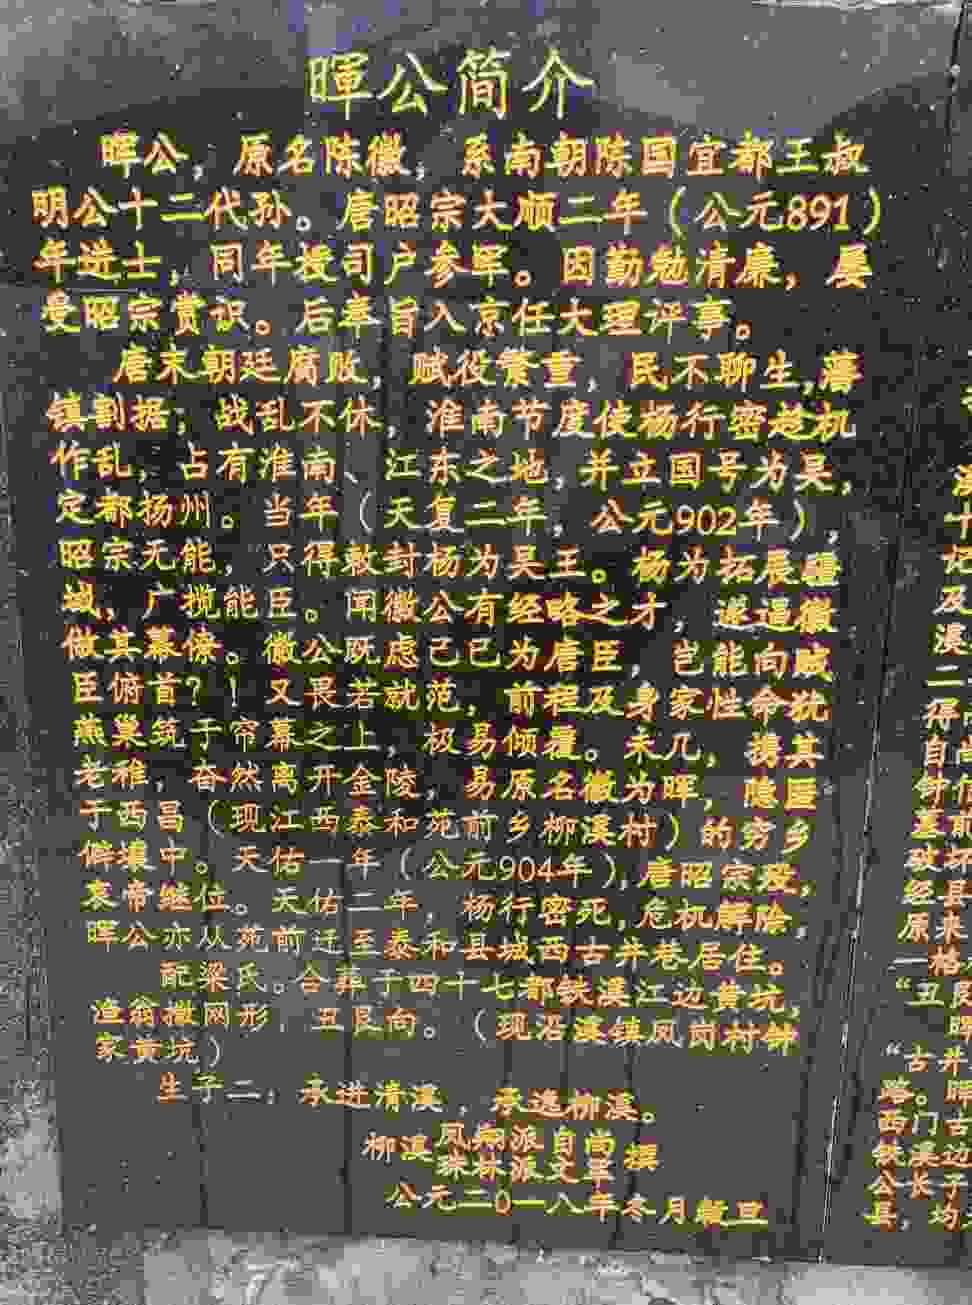 暉公简介
晖公，原名陈徽，系南朝陈国宜都王叔
明公十二代孙。唐昭宗大顺二年（公元891）
年进士，同年授司户参军。因勤勉清廉，屡
受昭宗赏识。后奉旨入京任大理评事。
唐末朝廷腐败，赋役繁重，民不聊生，藩
镇割据；战乱不休，淮南节度使杨行密趁机
作乱，占有淮南、江东之地，并立国号为吴，
定都扬州。当年（天复二年，公元902年），
昭宗无能，只得敕封杨为吴王。杨为拓展疆
域，广揽能臣。闻徽公有经略之才，遂逼徽
做其幕僚。徽公既虑己已为唐臣，岂能向贼
臣俯首？！又畏若就范，前程及身家性命犹
燕巢筑于帘幕之上，极易倾覆。未几，携其
老稚，奋然离开金陵，易原名徽为晖，隐匿
于西昌（现江西泰和苑前乡柳溪村）的穷乡
僻壤中。天佑一年（公元904年），唐昭宗殁，
哀帝继位。天佑二年，杨行密死，危机解除，
晖公亦从苑前迁至泰和县城西古井巷居住。
配梁氏。合葬于四十七都铁溪江边黄坑，
渔翁撒网形，丑艮向。（现沿溪镇凤岗村钟
家黄坑）
生子二：承进清溪，承逸柳溪。
柳溪 凤翔派自尚 撰
林派文
公元二0一八年冬月 旦
溪
十
及
溪
二
得
自尚
前
破坏
经县
原来
一格
“丑艮
晖
“古井
略。晖
西门古
铁溪边
公长于
县，均